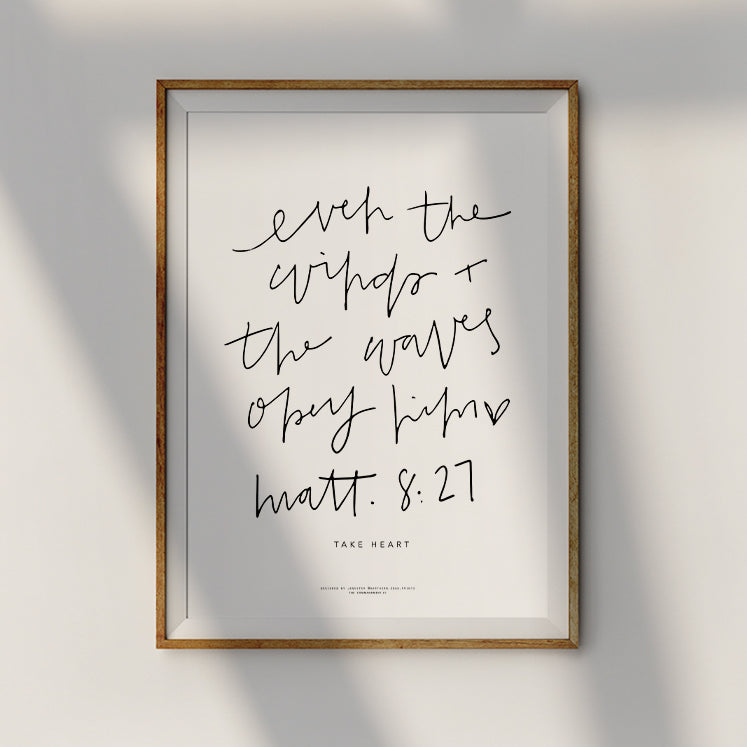 even the
winds +
the waves
obey him
matt. 8:27
TAKE HEART
DESIGNED BY JENNIFER